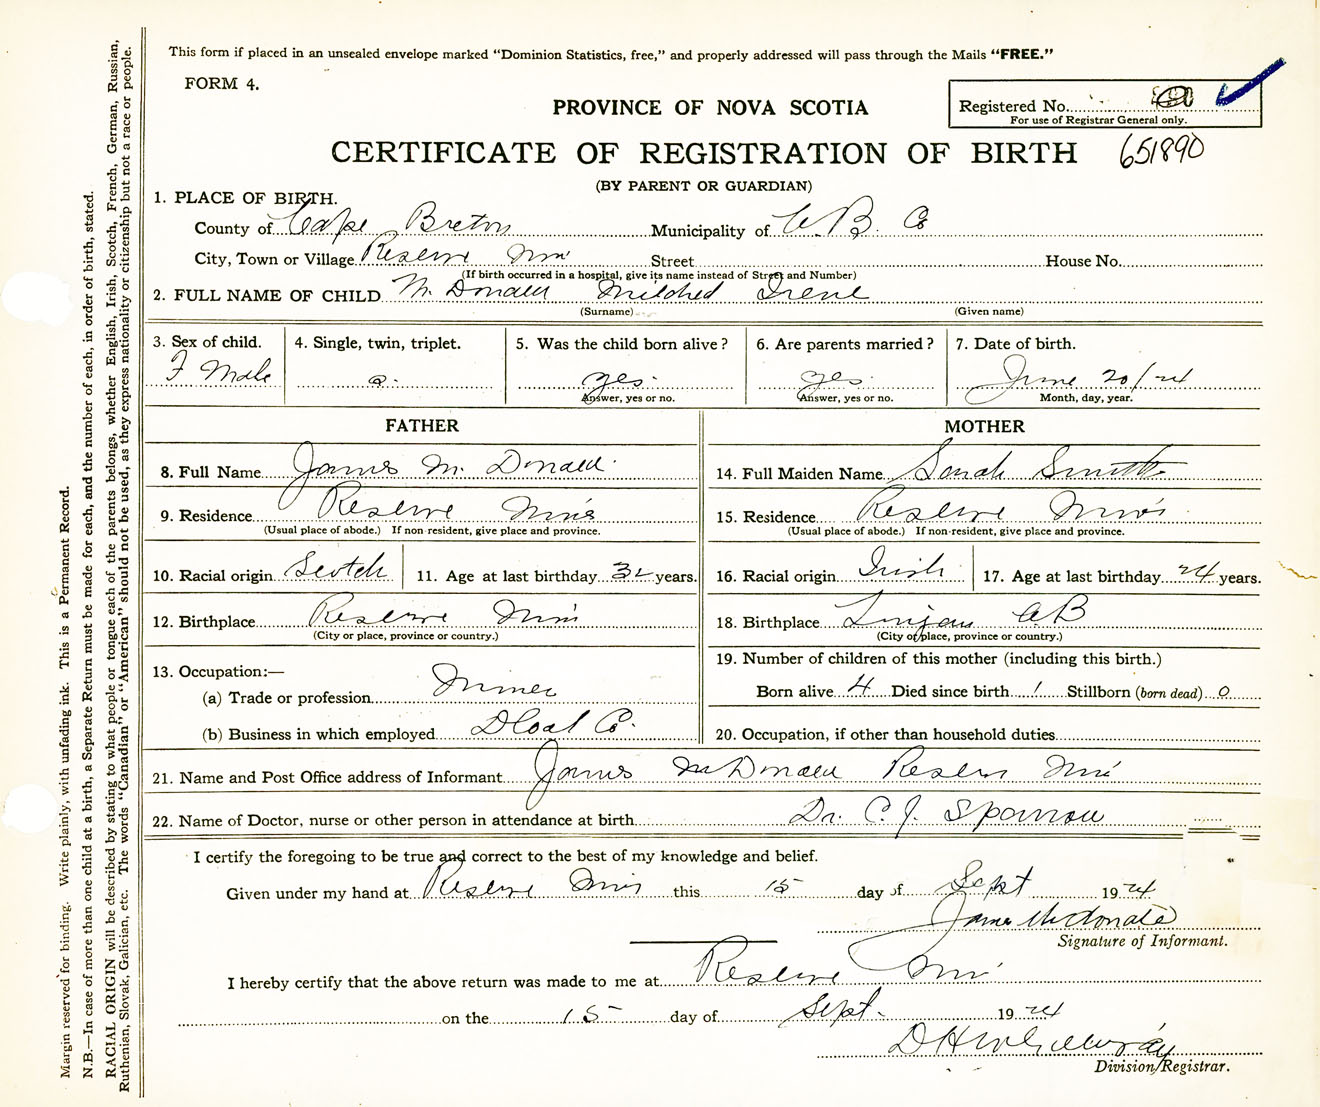 This form if placed in an unsealed envelope marked "Dominion Statistics, free," and properly addressed will pass through the Mails "FREE."
FORM 4.
PROVINCE OF NOVA SCOTIA
Registered No.
For use of Registrar General only.
CERTIFICATE OF REGISTRATION OF BIRTH 651890
(BY PARENT OR GUARDIAN)
1. PLACE OF BIRTH.
County of Cape Breton Municipality of C. B. Co
City, Town or Village Reserve Mines Street House No.
(If birth occurred in a hospital, give its name instead of Street and Number)
2. FULL NAME OF CHILD McDonald Mildred Irene
(Surname) (Given name)
3. Sex of child. 4. Single, twin, triplet. 5. Was the child born alive? 6. Are parents married? 7. Date of birth.
F Male yes. yes. June 20/24
Answer, yes or no. Answer, yes or no. Month, day, year.
FATHER
8. Full Name James McDonald
9. Residence Reserve Mines
(Usual place of abode.) If non-resident, give place and province.
10. Racial origin Scotch 11. Age at last birthday 32 years.
12. Birthplace Reserve Mines
(City or place, province or country.)
13. Occupation:—
(a) Trade or profession Miner
(b) Business in which employed D Coal Co.
MOTHER
14. Full Maiden Name Sarah Smith
15. Residence Reserve Mines
(Usual place of abode.) If non-resident, give place and province.
16. Racial origin Irish 17. Age at last birthday 24 years.
18. Birthplace Lingan CB
(City or place, province or country.)
19. Number of children of this mother (including this birth.)
Born alive 4 Died since birth 1 Stillborn (born dead) 0
20. Occupation, if other than household duties
21. Name and Post Office address of Informant James McDonald Reserve Mines
22. Name of Doctor, nurse or other person in attendance at birth Dr. C. J. Sparrow
I certify the foregoing to be true and correct to the best of my knowledge and belief.
Given under my hand at Reserve Mines this 15 day of Sept 1924
James McDonald
Signature of Informant.
I hereby certify that the above return was made to me at Reserve Mines
on the 15 day of Sept. 1924
D H McGillivray
Division Registrar.
Margin reserved for binding. Write plainly, with unfading ink. This is a Permanent Record.
N.B.—In case of more than one child at a birth, a Separate Return must be made for each, and the number of each, in order of birth, stated.
RACIAL ORIGIN will be described by stating to what people or tongue each of the parents belongs, whether English, Irish, Scotch, French, German, Russian,
Ruthenian, Slovak, Galician, etc. The words "Canadian" or "American" should not be used, as they express nationality or citizenship but not a race or people.